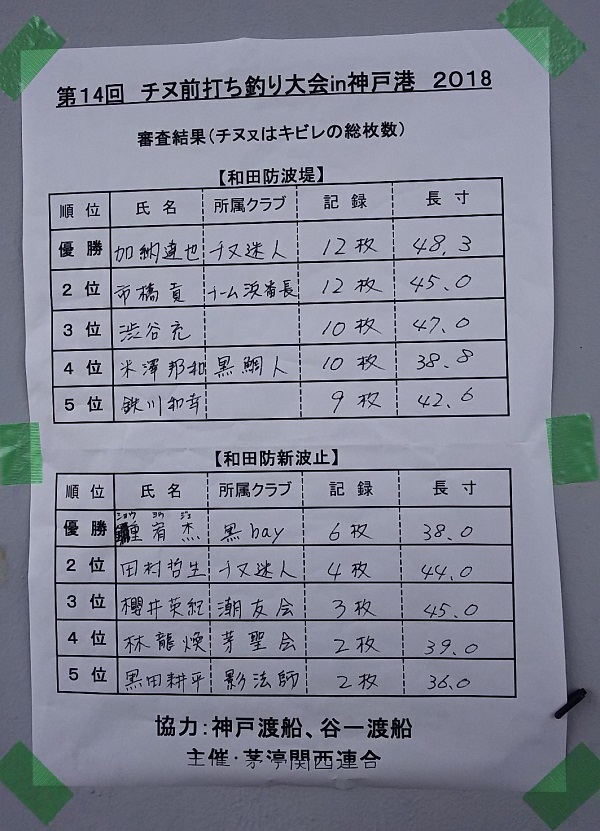 第14回 チヌ前打ち釣り大会in神戸港 2018
審査結果(チヌ又はキビレの総枚数)
【和田防波堤】
順位 氏名 所属クラブ 記録 長寸
優勝 加納達也 チヌ迷人 12枚 48.3
2位 市橋貢 チーム浜番長 12枚 45.0
3位 渋谷充 10枚 47.0
4位 米澤邦和 黒鯛人 10枚 38.8
5位 鉄川和幸 9枚 42.6
【和田防新波止】
順位 氏名 所属クラブ 記録 長寸
ショウ ヨウ ジェ
優勝 鍾宥杰 黒bay 6枚 38.0
2位 田村哲生 チヌ迷人 4枚 44.0
3位 櫻井英紀 潮友会 3枚 45.0
4位 林龍煥 茅聖会 2枚 39.0
5位 黒田耕平 影法師 2枚 36.0
協力:神戸渡船、谷一渡船
主催・茅渟関西連合